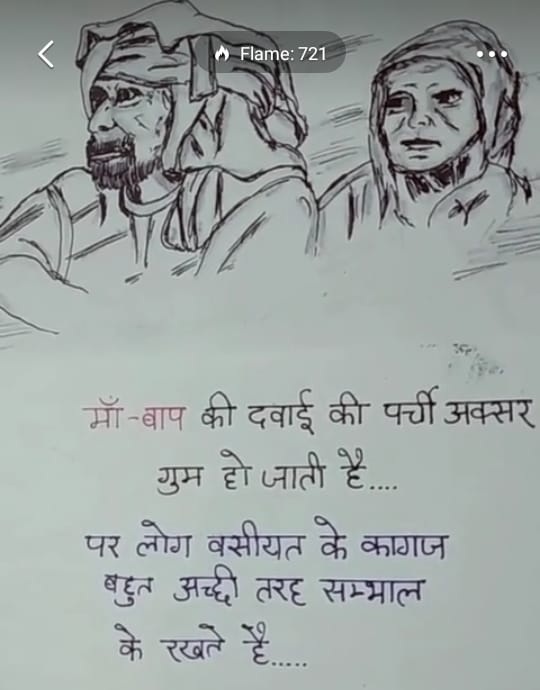 Flame: 721
माँ-बाप की दवाई की पर्ची अक्सर
गुम हो जाती है....
पर लोग वसीयत के कागज
बहुत अच्छी तरह सम्भाल
के रखते है.....